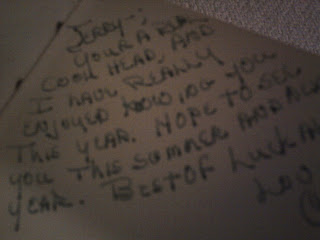 Jerry-:
Your a real
cool head, and
I have really
enjoyed knowing you
this year. Hope to see
you this summer and
year. Best of luck